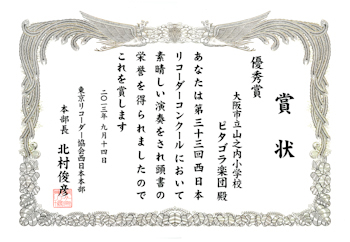 賞状
優秀賞
大阪市立山之内小学校
ピタゴラ楽団殿
あなたは第三十三回西日本
リコーダーコンクールにおいて
素晴しい演奏をされ頭書の
栄誉を得られましたので
これを賞します
二〇一三年九月十四日
東京リコーダー協会西日本本部
本部長 北村俊彦